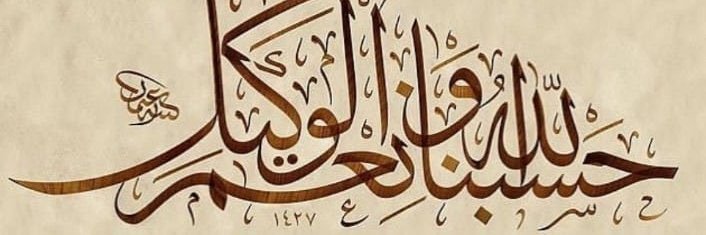 حَسْبُنَا اللّٰهُ وَنِعْمَ الْوَكِيلُ
١٤٢٧